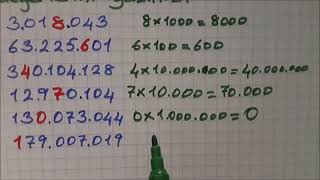 3.018.043 8×1000=8000
63.225.601 6×100=600
340.104.128 4×10.000.000=40.000.000
12.970.104 7×10.000=70.000
130.073.044 0×1.000.000=0
179.007.019